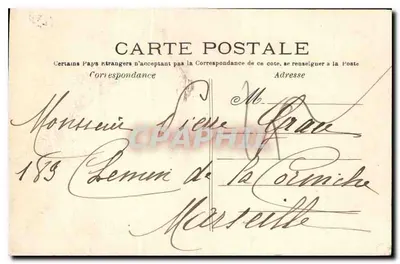 CARTE POSTALE
Certains Pays étrangers n'acceptant pas la Correspondance de ce côté, se renseigner à la Poste
Correspondance Adresse
M
Monsieur Pierre
189 Chemin de la Corniche
Marseille
DELCAMPE